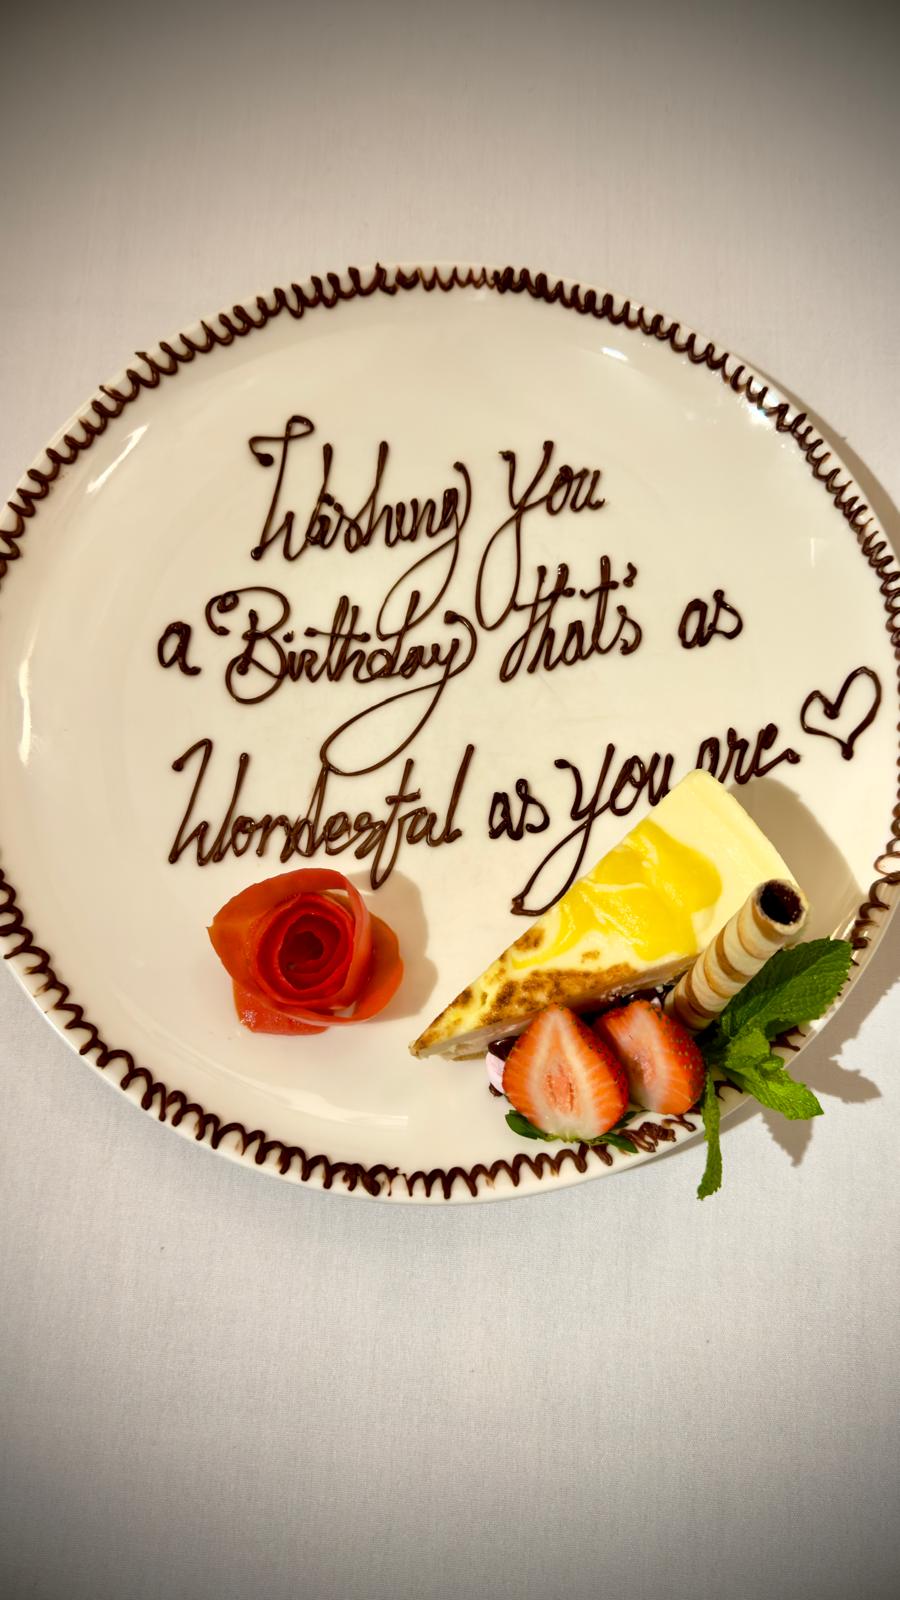 Wishing you
a Birthday that's as
Wonderful as you are.